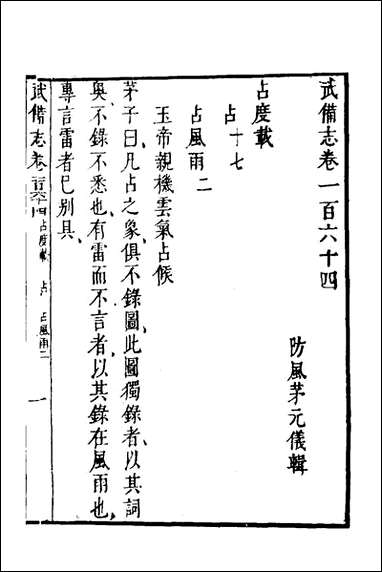 武備志卷一百六十四
防風茅元儀輯
占度載
占十七
占風雨二
玉帝親機雲氣占候
茅子曰凡占之象俱不錄圖此圖獨錄者以其詞
與不錄不悉也有雷而不言者以其錄在風雨也
專言雷者已别具
武備志卷一百六十四 占度載 占 占風雨二 一